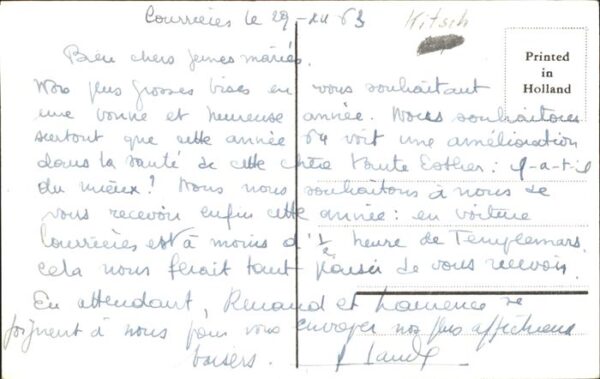 Courrières le 29-XII 63
Kitsch
Printed
in
Holland
Bien chers jeunes mariés.
Nos plus grosses bises en vous souhaitant
une bonne et heureuse année. Nous souhaitons
surtout que cette année 64 voit une amélioration
dans la santé de cette chère tante Esther : y-a-t-il
du mieux ? Nous nous souhaitons à nous de
vous recevoir enfin cette année : en voiture
Courrières est à moins d'1/2 heure de Templemars.
cela nous ferait tant plaisir de vous recevoir.
En attendant, Renaud et Laurence se
joignent à nous pour vous envoyer nos plus affectueux
baisers.